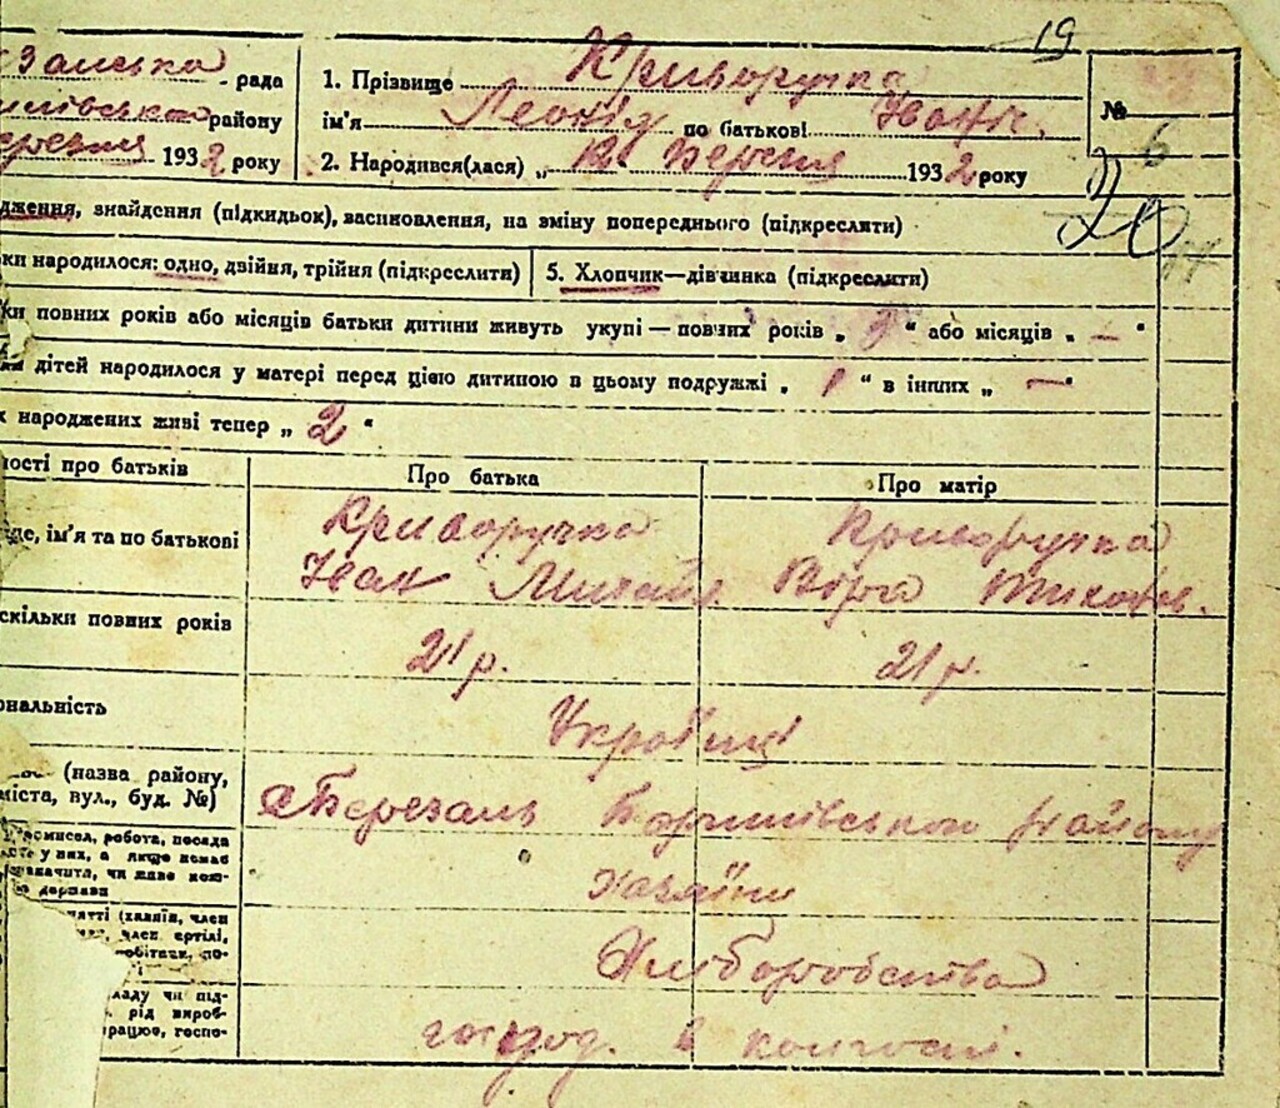 19
занська рада
1. Прізвище Криворучка
№
лівська району
ім'я Леонід по батькові Іванів.
6
ерезня 1932 року
2. Народився(лася) „12" Березня 1932 року
20
дження, знайдення (підкидьок), васиновлення, на зміну попереднього (підкреслити)
ки народилося: одно, двійня, трійня (підкреслити)
5. Хлопчик—дівчинка (підкреслити)
ки повних років або місяців батьки дитини живуть укупі — повних років „ " або місяців „ — "
дітей народилося у матері перед цією дитиною в цьому подружжі „ 1 " в інших „ — "
х народжених живі тепер „ 2 "
ості про батьків
Про батька
Про матір
ще, ім'я та по батькові
Криворучка
Іван Михайл.
Криворучка
Віра Тихонів.
скільки повних років
21 р.
21 р.
ональність
Українці
(назва району,
міста, вул., буд. №)
с Березань Баришівського району
ромисел, робота, посада
у них, а якщо немає
значити, чи живе кош-
держави
Хазяїни
нятті (хазяїн, член
член артілі,
робітник, по-
Хліборобства
ладу чи під-
рід вироб-
працює, госпо-
господ. в колгоспі.